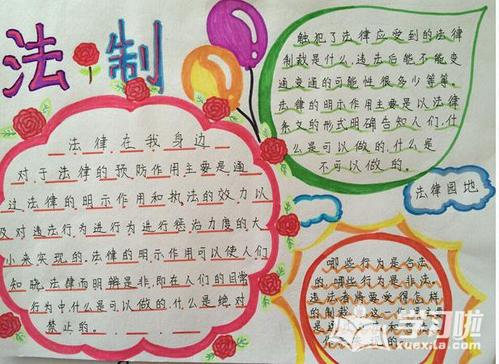 法制
法律在我身边
对于法律的预防作用主要是通
过法律的明示作用和执法的效力以
及对违法行为进行为进行惩治力度的大
小来实现的.法律的明示作用可以使人们
知晓法律而明辨是非.即在人们的日常
行为中.什么是可以做的.什么是绝对
禁止的。
触犯了法律应爱到的法律
制裁是什么.违法后能不能变
通变通的可能性很多少等等。
法律的明示作用主要是以法律
条文的形式明确告知人们.什
么是可以做的.什么是
不可以做的。
法律园地
哪些行为是合法
的.哪些行为是非法.
违法者将要受得怎样
的制裁.这一
学习啦
xuexila.com